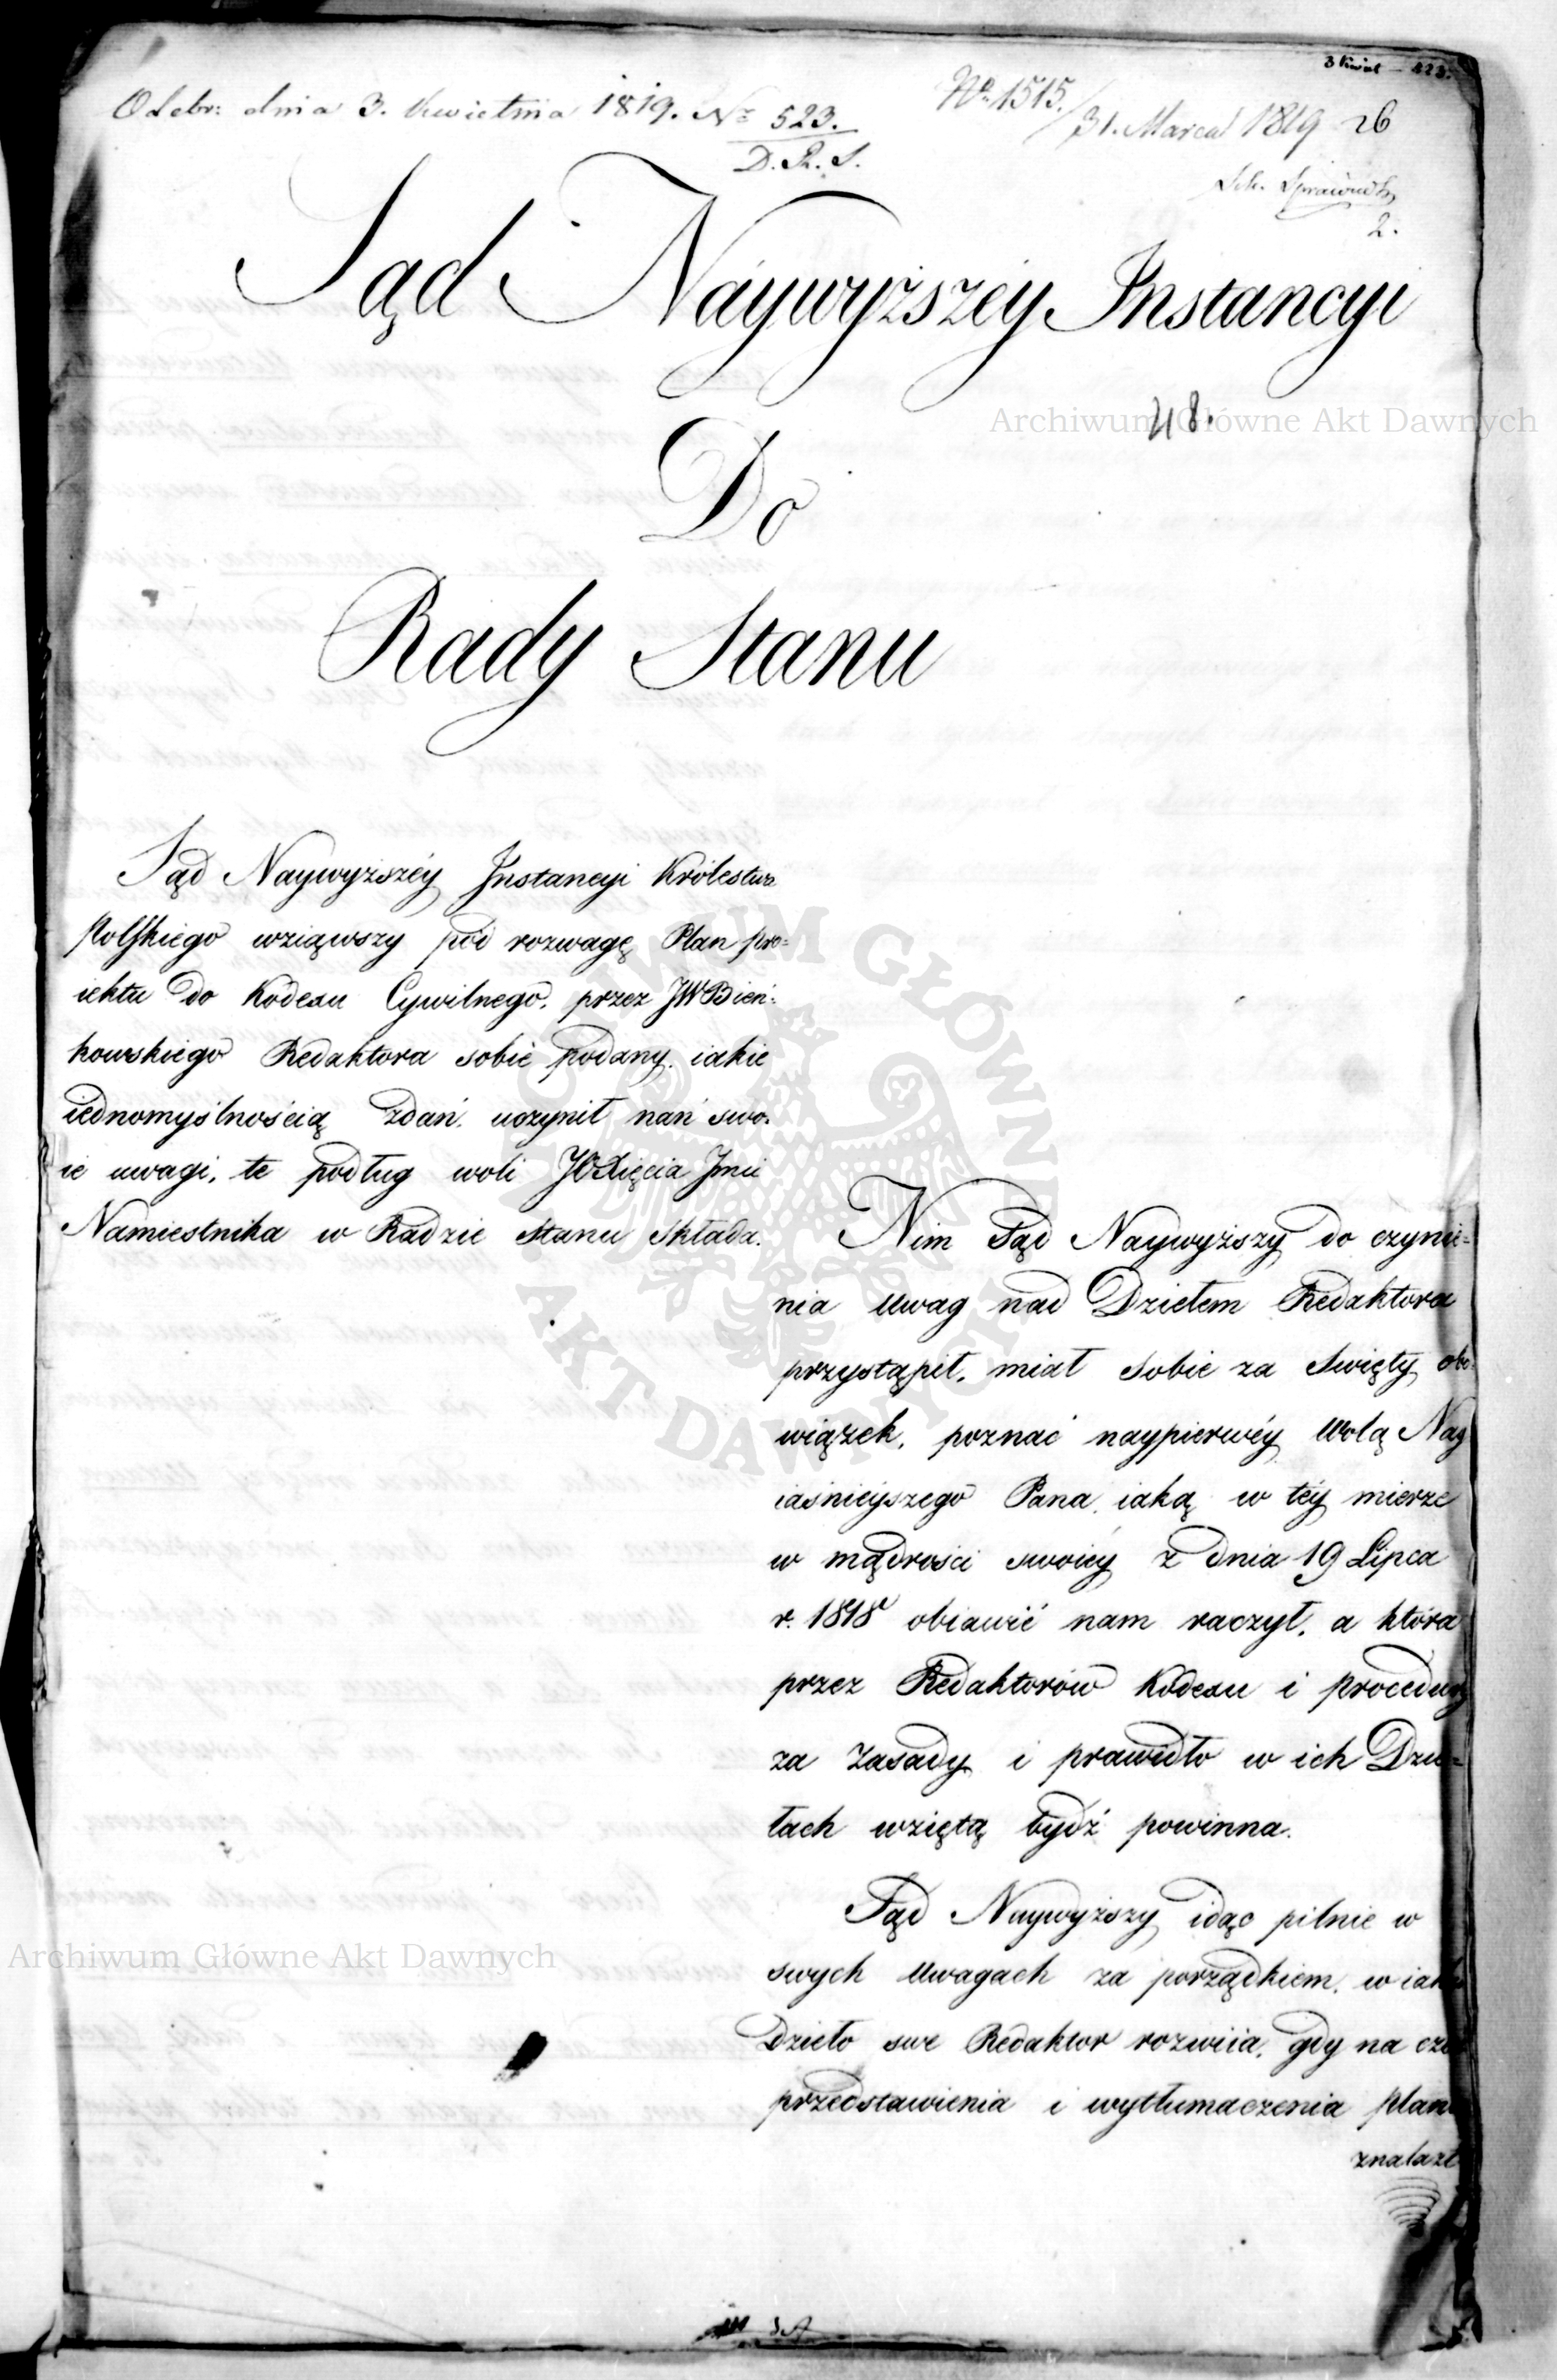 3 Kwiet – 523.
Odebr: dnia 3. Kwietnia 1819. Nº 523.
D. R. S.
Nº 1515. / 31. Marca 1819 26
2.
Sąd Naywyższéy Instancyi
48.
Do
Rady Stanu
Sąd Naywyższéy Instancyi Królestwa
Polskiego wziąwszy pod rozwagę Plan pro=
iektu do Kodexu Cywilnego, przez JW Bień=
kowskiego Redaktora sobie podany, iakie
iednomyślnością zdań, uczynił nań swo=
ie uwagi, te podług woli JO Xięcia Jmci
Namiestnika w Radzie Stanu składa.
Nim Sąd Naywyższy do czynie=
nia uwag nad Dziełem Redaktora
przystąpił, miał sobie za święty obo=
wiązek, poznać naypierwéy Wolą Nay
iaśnieyszego Pana, iaką w téy mierze
w mądrości swoiéy z dnia 19 Lipca
r. 1818 obiawić nam raczył, a która
przez Redaktorów Kodexu i procedury
za zasady i prawidło w ich Dzie=
łach wziętą bydź powinna.
Sąd Naywyższy idąc pilnie w
swych uwagach za porządkiem, w iak
Dzieło swe Redaktor rozwiia, gdy na cze
przedstawienia i wytłumaczenia plan
znalazł
Archiwum Główne Akt Dawnych
Archiwum Główne Akt Dawnych
ARCHIWUM GŁÓWNE AKT DAWNYCH